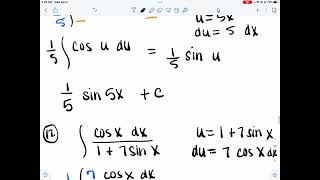 1/5 ) u = 5x
du = 5 dx
1/5 ∫ cos u du = 1/5 sin u
1/5 sin 5x + c
∫ cos x dx / 1 + 7 sin x u = 1 + 7 sin x
du = 7 cos x dx
1 ∫ 7 cos x dx